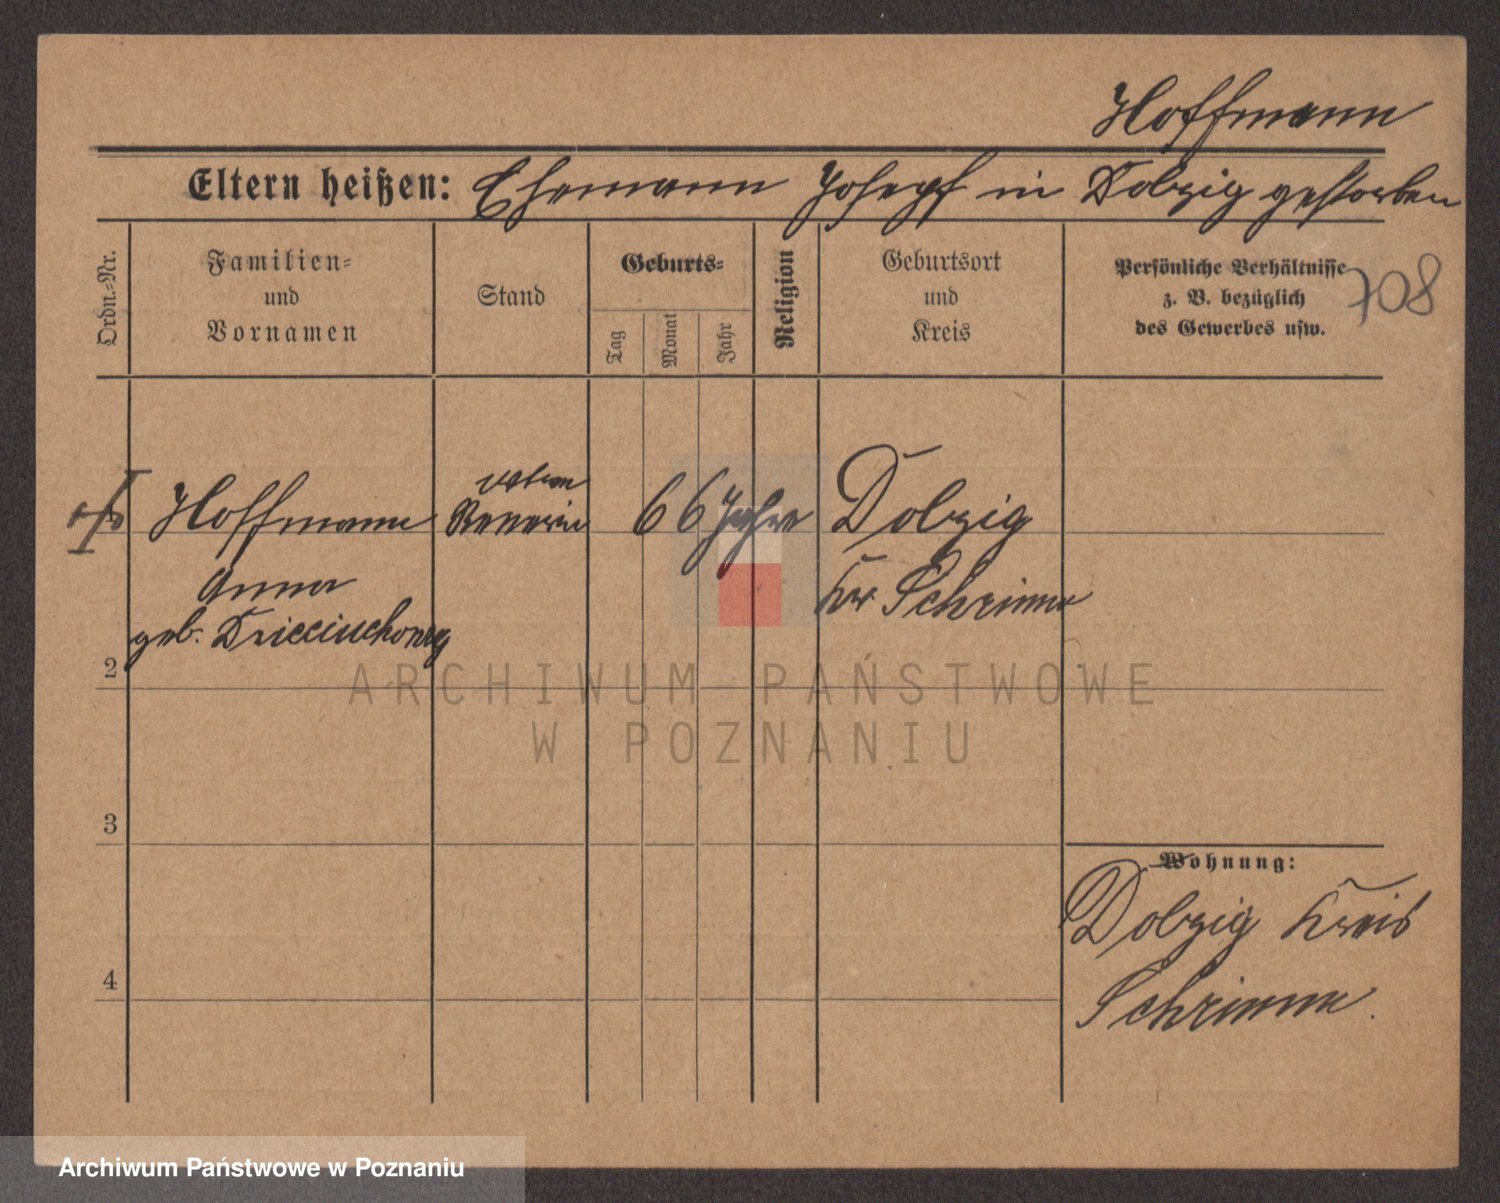 Hoffmann
Eltern heißen: Ehemann Joseph in Dolzig gestorben
Ordn.-Nr.
Familien-
und
Vornamen
Stand
Geburts-
Tag
Monat
Jahr
Religion
Geburtsort
und
Kreis
Persönliche Verhältnisse
z. B. bezüglich
des Gewerbes usw.
708
Hoffmann
Anna
geb.
66 Jahre
Dolzig
Kr Schrimm
2
3
4
Wohnung:
Dolzig Kreis
Schrimm.
ARCHIWUM PAŃSTWOWE
W POZNANIU
Archiwum Państwowe w Poznaniu